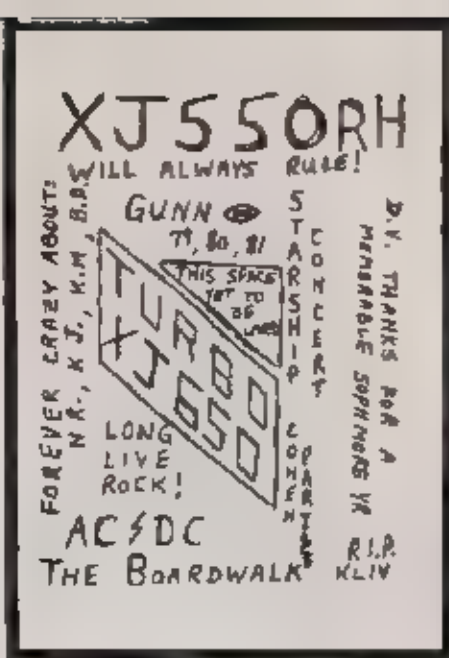 XJ550RH
WILL ALWAYS RULE!
FOREVER CRAZY ABOUT:
N.R., K.J., K.M., B.D.
GUNN
79, 80, 81
THIS SPACE
YET TO
BE
USED
TURBO
XJ650
STARSHIP
CONCERT
D.V. THANKS FOR A
MEMORABLE SOPHMORE YR
LONG
LIVE
ROCK!
COHEN
PARTIES
AC⚡DC
THE BOARDWALK
R.I.P.
KLIV